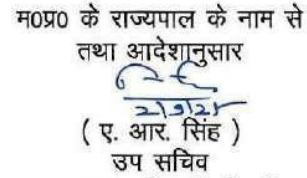 म0प्र0 के राज्यपाल के नाम से
तथा आदेशानुसार
2/9/25
( ए. आर. सिंह )
उप सचिव